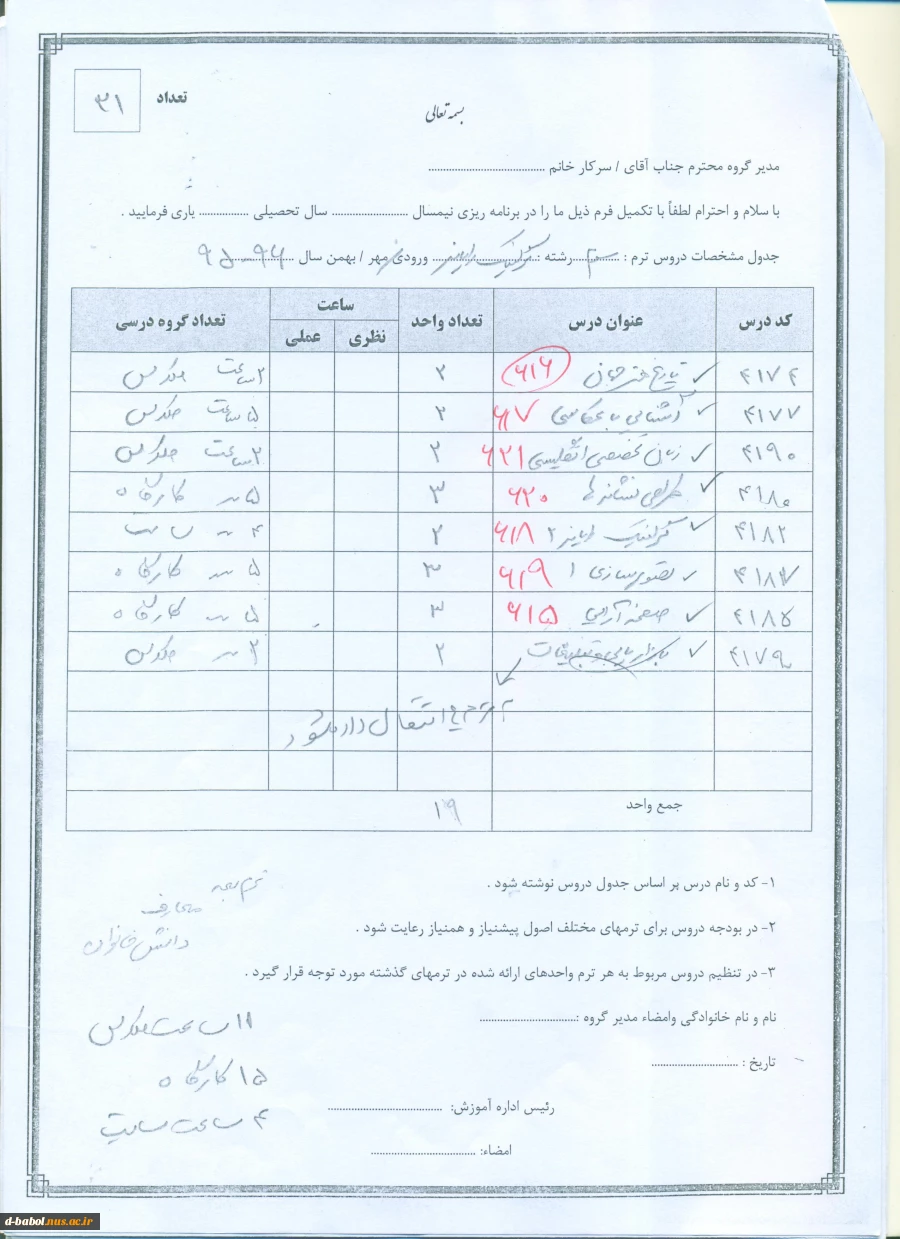 بسمه تعالی
تعداد ۳۱
مدیر گروه محترم جناب آقای / سرکار خانم ........................................
با سلام و احترام لطفاً با تکمیل فرم ذیل ما را در برنامه ریزی نیمسال .......................... سال تحصیلی ................. یاری فرمایید .
جدول مشخصات دروس ترم : رشته : گرافیک ورودی مهر / بهمن سال ۹۵-۹۶
کد درس عنوان درس تعداد واحد ساعت تعداد گروه درسی
نظری عملی
۴۱۷۴ ✓ تاریخ هنر جهان ۶۱۶ ۲ ۲ ساعت کلاس
۴۱۷۷ ✓ آشنایی با عکاسی ۶۱۷ ۲ ۵ ساعت کلاس
۴۱۹۰ ✓ زبان تخصصی انگلیسی ۶۲۱ ۲ ۲ ساعت کلاس
۴۱۸۰ ✓ طراحی نشانه ها ۶۲۰ ۳ ۵ کارگاه
۴۱۸۲ ✓ گرافیک ۲ ۶۱۸ ۲ ۴ سایت
۴۱۸۳ ✓ تصویرسازی ۱ ۶۱۹ ۳ ۵ کارگاه
۴۱۸۵ ✓ صفحه آرایی ۶۱۵ ۳ ۵ کارگاه
۴۱۷۹ ✓ بازاریابی و تبلیغات ۲ ۲ کلاس
انتقال داده شود
جمع واحد ۱۹
۱- کد و نام درس بر اساس جدول دروس نوشته شود .
۲- در بودجه دروس برای ترمهای مختلف اصول پیشنیاز و همنیاز رعایت شود .
۳- در تنظیم دروس مربوط به هر ترم واحدهای ارائه شده در ترمهای گذشته مورد توجه قرار گیرد .
ترم بعد
معارف
دانش خانواده
نام و نام خانوادگی وامضاء مدیر گروه :.................................
۱۱ ساعت کلاس
تاریخ : ..............................
۱۵ کارگاه
رئیس اداره آموزش: .......................................
۴ ساعت سایت
امضاء: ....................................
d-babol.nus.ac.ir